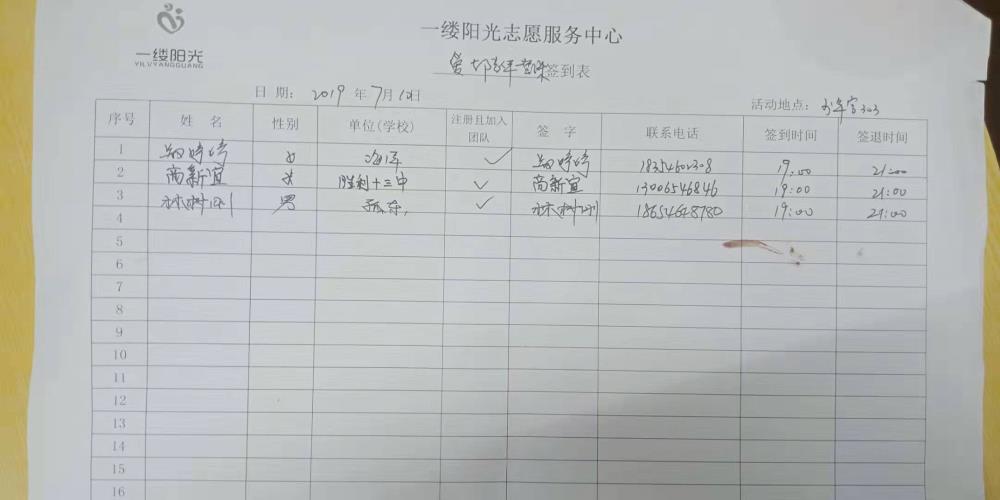 一缕阳光
YILVYANGGUANG
一缕阳光志愿服务中心
签到表
日 期： 2019 年 7月10日
活动地点： 少年宫303
序号 姓 名 性别 单位(学校) 注册且加入团队 签 字 联系电话 签到时间 签退时间
1 女 ✓ 18354602308 19:00 21:00
2 商新宜 女 胜利十三中 ✓ 商新宜 13006546846 19:00 21:00
3 男 孤东 ✓ 18654648780 19:00 21:00
4
5
6
7
8
9
10
11
12
13
14
15
16